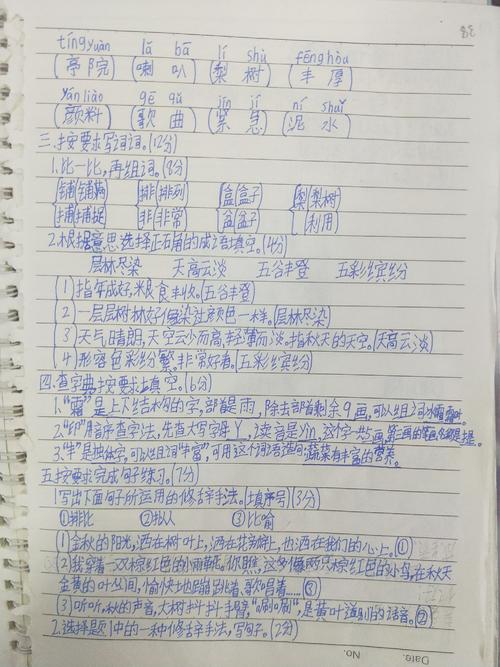 38
tíngyuàn lǎ bā lí shù fēnghòu
(亭院)(喇叭)(梨树)(丰厚)
yánliào gē qǔ jǐn jí ní shuǐ
(颜料)(歌曲)(紧急)(泥水)
三.按要求写词词。(12分)
1.比一比,再组词。(8分)
铺(铺满) 排(排列) 盒(盒子) 梨(梨树)
捕(捕捉) 非(非常) 盆(盆子) 利(利用)
2.根据意思选择正确的成语填空。(4分)
层林尽染 天高云淡 五谷丰登 五彩缤纷
(1)指年成好,粮食丰收。(五谷丰登)
(2)一层层树林好像染过颜色一样。(层林尽染)
(3)天气晴朗,天空云少而高,轻薄而淡。指秋天的天空。(天高云淡)
(4)形容色彩纷繁,非常好看。(五彩缤纷)
四.查字典,按要求填空。(6分)
1."霜"是上下结构的字,部首是雨,除去部首剩余9画,可以组词冰霜
2."印"用音序查字法,先查大写字母Y,读音是yìn,这个字共5画,第二画的笔画名称是提。
3."丰"是独体字,可以组词"丰富",可用这个词语造句:蔬菜有丰富的营养。
五.按要求完成句子练习。(7分)
1.写出下面句子所运用的修辞手法。(填序号)(3分)
①排比 ②拟人 ③比喻
(1)金秋的阳光,洒在树叶上,洒在花瓣上,也洒在我们的心上。(①)
(2)我穿着一双棕红色的小雨靴。你瞧,这多像两只棕红色的小鸟,在秋天
金黄的叶丛间,愉快地蹦跳着、歌唱着……(③)
(3)听听,秋的声音,大树抖抖手臂,"唰唰",是黄叶道别的话音。(②)
2.选择题1中的一种修辞手法,写句子。(2分)
Date. No.